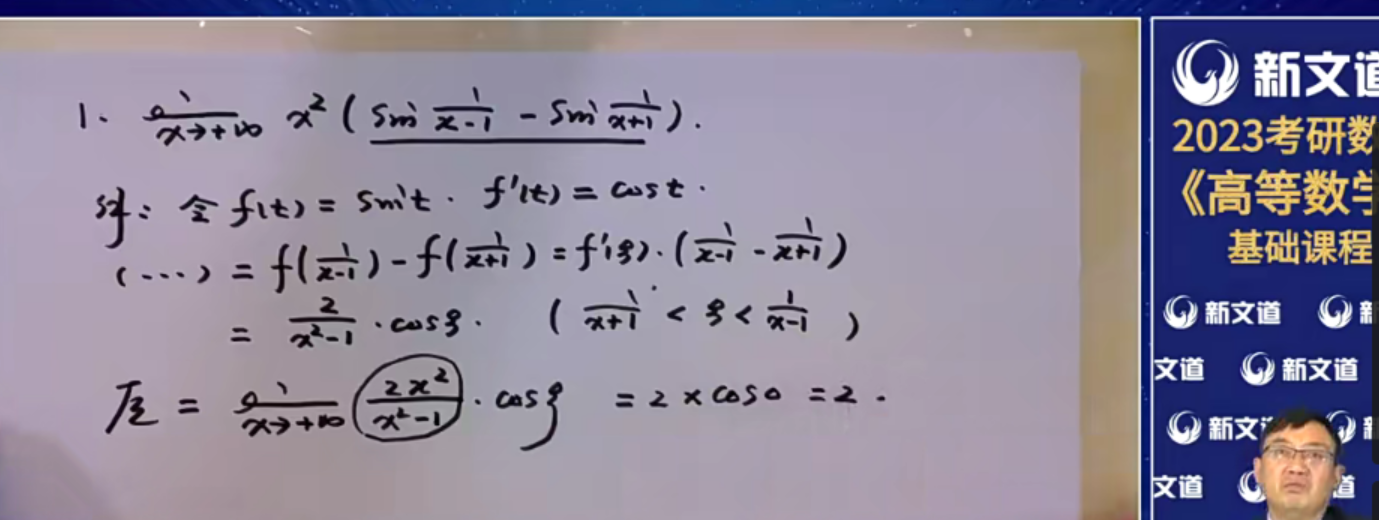 1. lim x→+∞ x² ( sin 1/(x-1) - sin 1/(x+1) ).
解: 令 f(t) = sin t . f'(t) = cos t .
(...) = f(1/(x-1)) - f(1/(x+1)) = f'(ξ)·(1/(x-1) - 1/(x+1))
= 2/(x²-1) · cosξ . ( 1/(x+1) < ξ < 1/(x-1) )
原 = lim x→+∞ 2x²/(x²-1) · cosξ = 2 × cos0 = 2 .
新文道
2023考研数
《高等数学
基础课程
新文道 新
文道 新文道
新文 新
文道 道